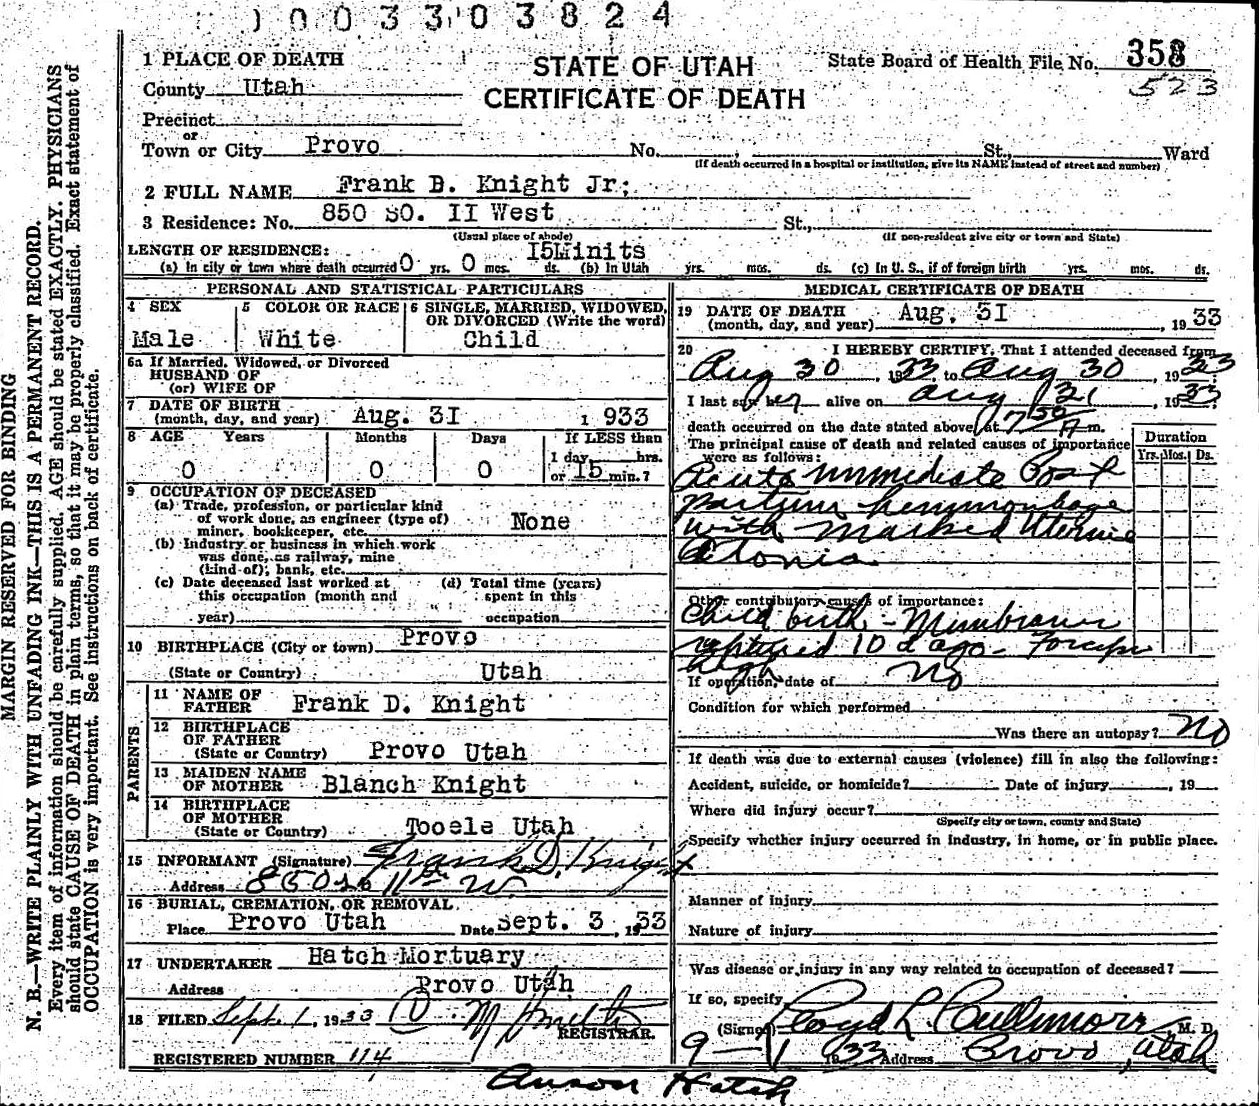 0 0 3 3 0 3 8 2 4
1 PLACE OF DEATH
County Utah
Precinct
or
Town or City Provo No. , St., Ward
(If death occurred in a hospital or institution, give its NAME instead of street and number)
STATE OF UTAH
CERTIFICATE OF DEATH
State Board of Health File No. 358
523
2 FULL NAME Frank B. Knight Jr;
3 Residence: No. 850 SO. II West St.,
(Usual place of abode) (If non-resident give city or town and State)
LENGTH OF RESIDENCE: I5Minits
(a) In city or town where death occurred 0 yrs. 0 mos. ds. (b) In Utah yrs. mos. ds. (c) In U. S., if of foreign birth yrs. mos. ds.
PERSONAL AND STATISTICAL PARTICULARS
4 SEX
Male
5 COLOR OR RACE
White
6 SINGLE, MARRIED, WIDOWED,
OR DIVORCED (Write the word)
Child
6a If Married, Widowed, or Divorced
HUSBAND OF
(or) WIFE OF
7 DATE OF BIRTH
(month, day, and year) Aug. 3I 1 933
8 AGE Years Months Days If LESS than
1 day, hrs.
0 0 0 or I5 min.?
9 OCCUPATION OF DECEASED
(a) Trade, profession, or particular kind
of work done, as engineer (type of)
miner, bookkeeper, etc. None
(b) Industry or business in which work
was done, as railway, mine
(kind of), bank, etc.
(c) Date deceased last worked at
this occupation (month and
year)
(d) Total time (years)
spent in this
occupation
10 BIRTHPLACE (City or town) Provo
(State or Country) Utah
PARENTS
11 NAME OF
FATHER Frank D. Knight
12 BIRTHPLACE
OF FATHER
(State or Country) Provo Utah
13 MAIDEN NAME
OF MOTHER Blanch Knight
14 BIRTHPLACE
OF MOTHER
(State or Country) Tooele Utah
15 INFORMANT (Signature) Frank D. Knight
Address 850 So 11th W.
16 BURIAL, CREMATION, OR REMOVAL
Place Provo Utah Date Sept. 3 , 1933
17 UNDERTAKER Hatch Mortuary
Address Provo Utah
18 FILED Sept. 1, 1933
REGISTRAR.
REGISTERED NUMBER 114
Anson Hatch
MEDICAL CERTIFICATE OF DEATH
19 DATE OF DEATH
(month, day, and year) Aug. 3I , 19 33
20 I HEREBY CERTIFY, That I attended deceased from
Aug 30 , 1933 to Aug 30 , 1933
I last saw her alive on Aug 31 , 1933
death occurred on the date stated above, at 7 50 A m.
The principal cause of death and related causes of importance
were as follows:
Duration
Yrs. Mos. Ds.
Acute immediate Post
partum hemmorhage
with marked Uterine
Atonia
Other contributory causes of importance:
Child birth - Membranes
ruptured 10 d ago - Forceps
high
If operation, date of No
Condition for which performed
Was there an autopsy? No
If death was due to external causes (violence) fill in also the following:
Accident, suicide, or homicide? Date of injury , 19
Where did injury occur?
(Specify city or town, county and State)
Specify whether injury occurred in industry, in home, or in public place.
Manner of injury
Nature of injury
Was disease or injury in any way related to occupation of deceased?
If so, specify
(Signed) Lloyd L. Cullimore, M. D.
9 - 1 1933 Address Provo, Utah
MARGIN RESERVED FOR BINDING
N. B.—WRITE PLAINLY WITH UNFADING INK—THIS IS A PERMANENT RECORD.
Every item of information should be carefully supplied. AGE should be stated EXACTLY. PHYSICIANS
should state CAUSE OF DEATH in plain terms, so that it may be properly classified. Exact statement of
OCCUPATION is very important. See instructions on back of certificate.